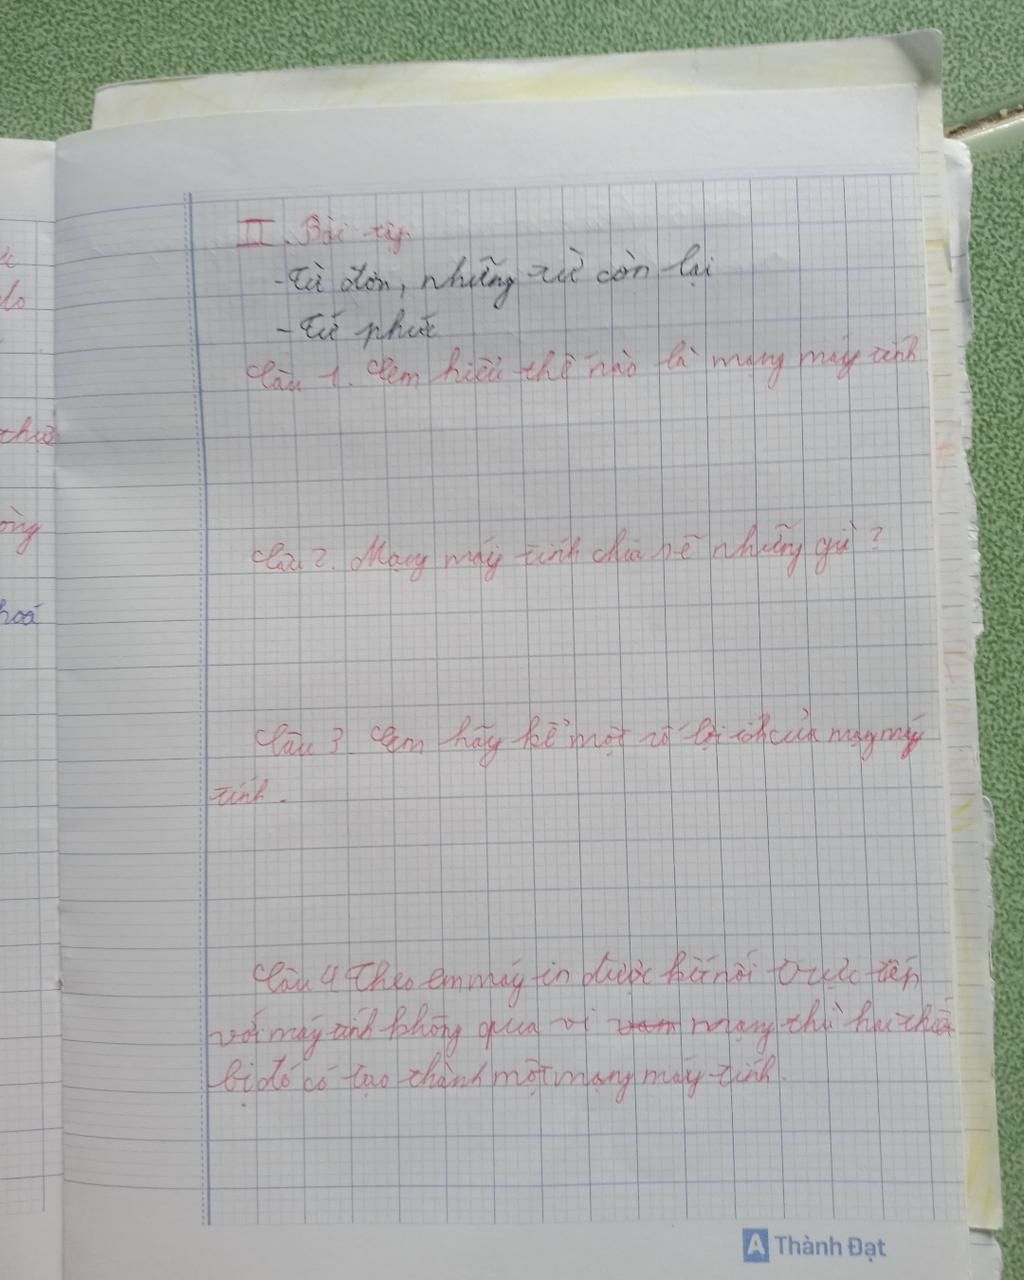 II. Bài tập
- Từ đơn, những từ còn lại
- Từ phức
Câu 1. Em hiểu thế nào là mạng máy tính
Câu 2. Mạng máy tính chia sẻ những gì?
Câu 3. Em hãy kể một số lợi ích của mạng máy
tính.
Câu 4 Theo em máy in được kết nối trực tiếp
với máy tính không qua vi mạng thì hai thiết
bị đó có tạo thành một mạng máy tính.
do
hoá
A Thành Đạt